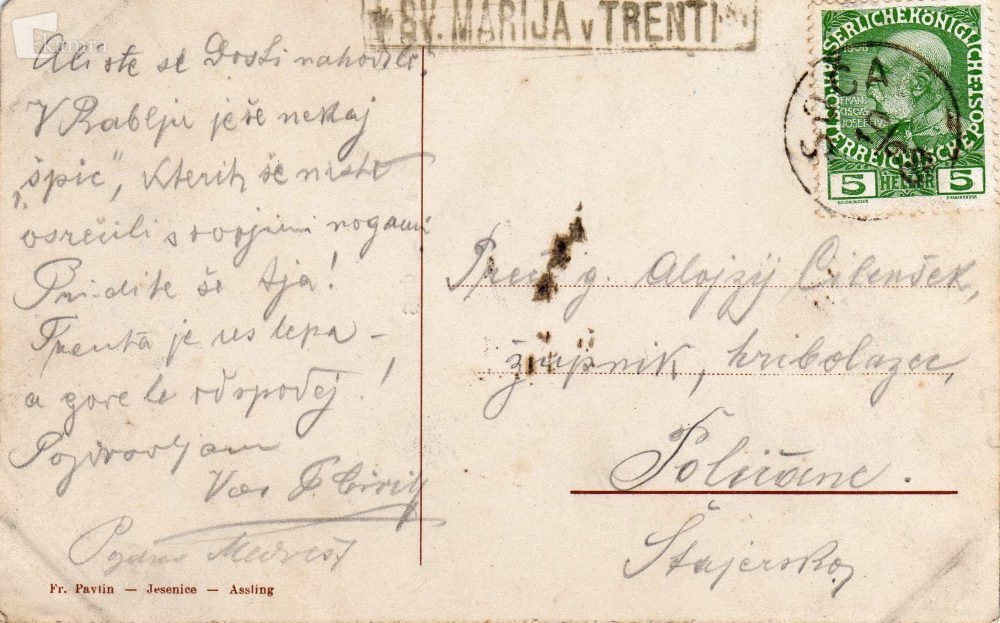 Kamra
* SV. MARIJA v TRENTI *
Ali ste se Dosti nahodili
V Rablju je še nekaj
„špic“, kterih še niste
osrečili s svojimi nogami
Pridite še tja!
Trenta je us lepa –
a gore le odspodej!
Pozdravljam
Vas
Pozdrav
Fr. Pavlin — Jesenice — Assling
KAISERLICHE KÖNIGLICHE ÖSTERREICHISCHE
1908
FRAN
CISCVS
JOSEF I
5 HELLER 5
SOČA
Preč. g. Alojzij Cilenšek,
župnik, hribolazec,
Poličane.
Štajersko,